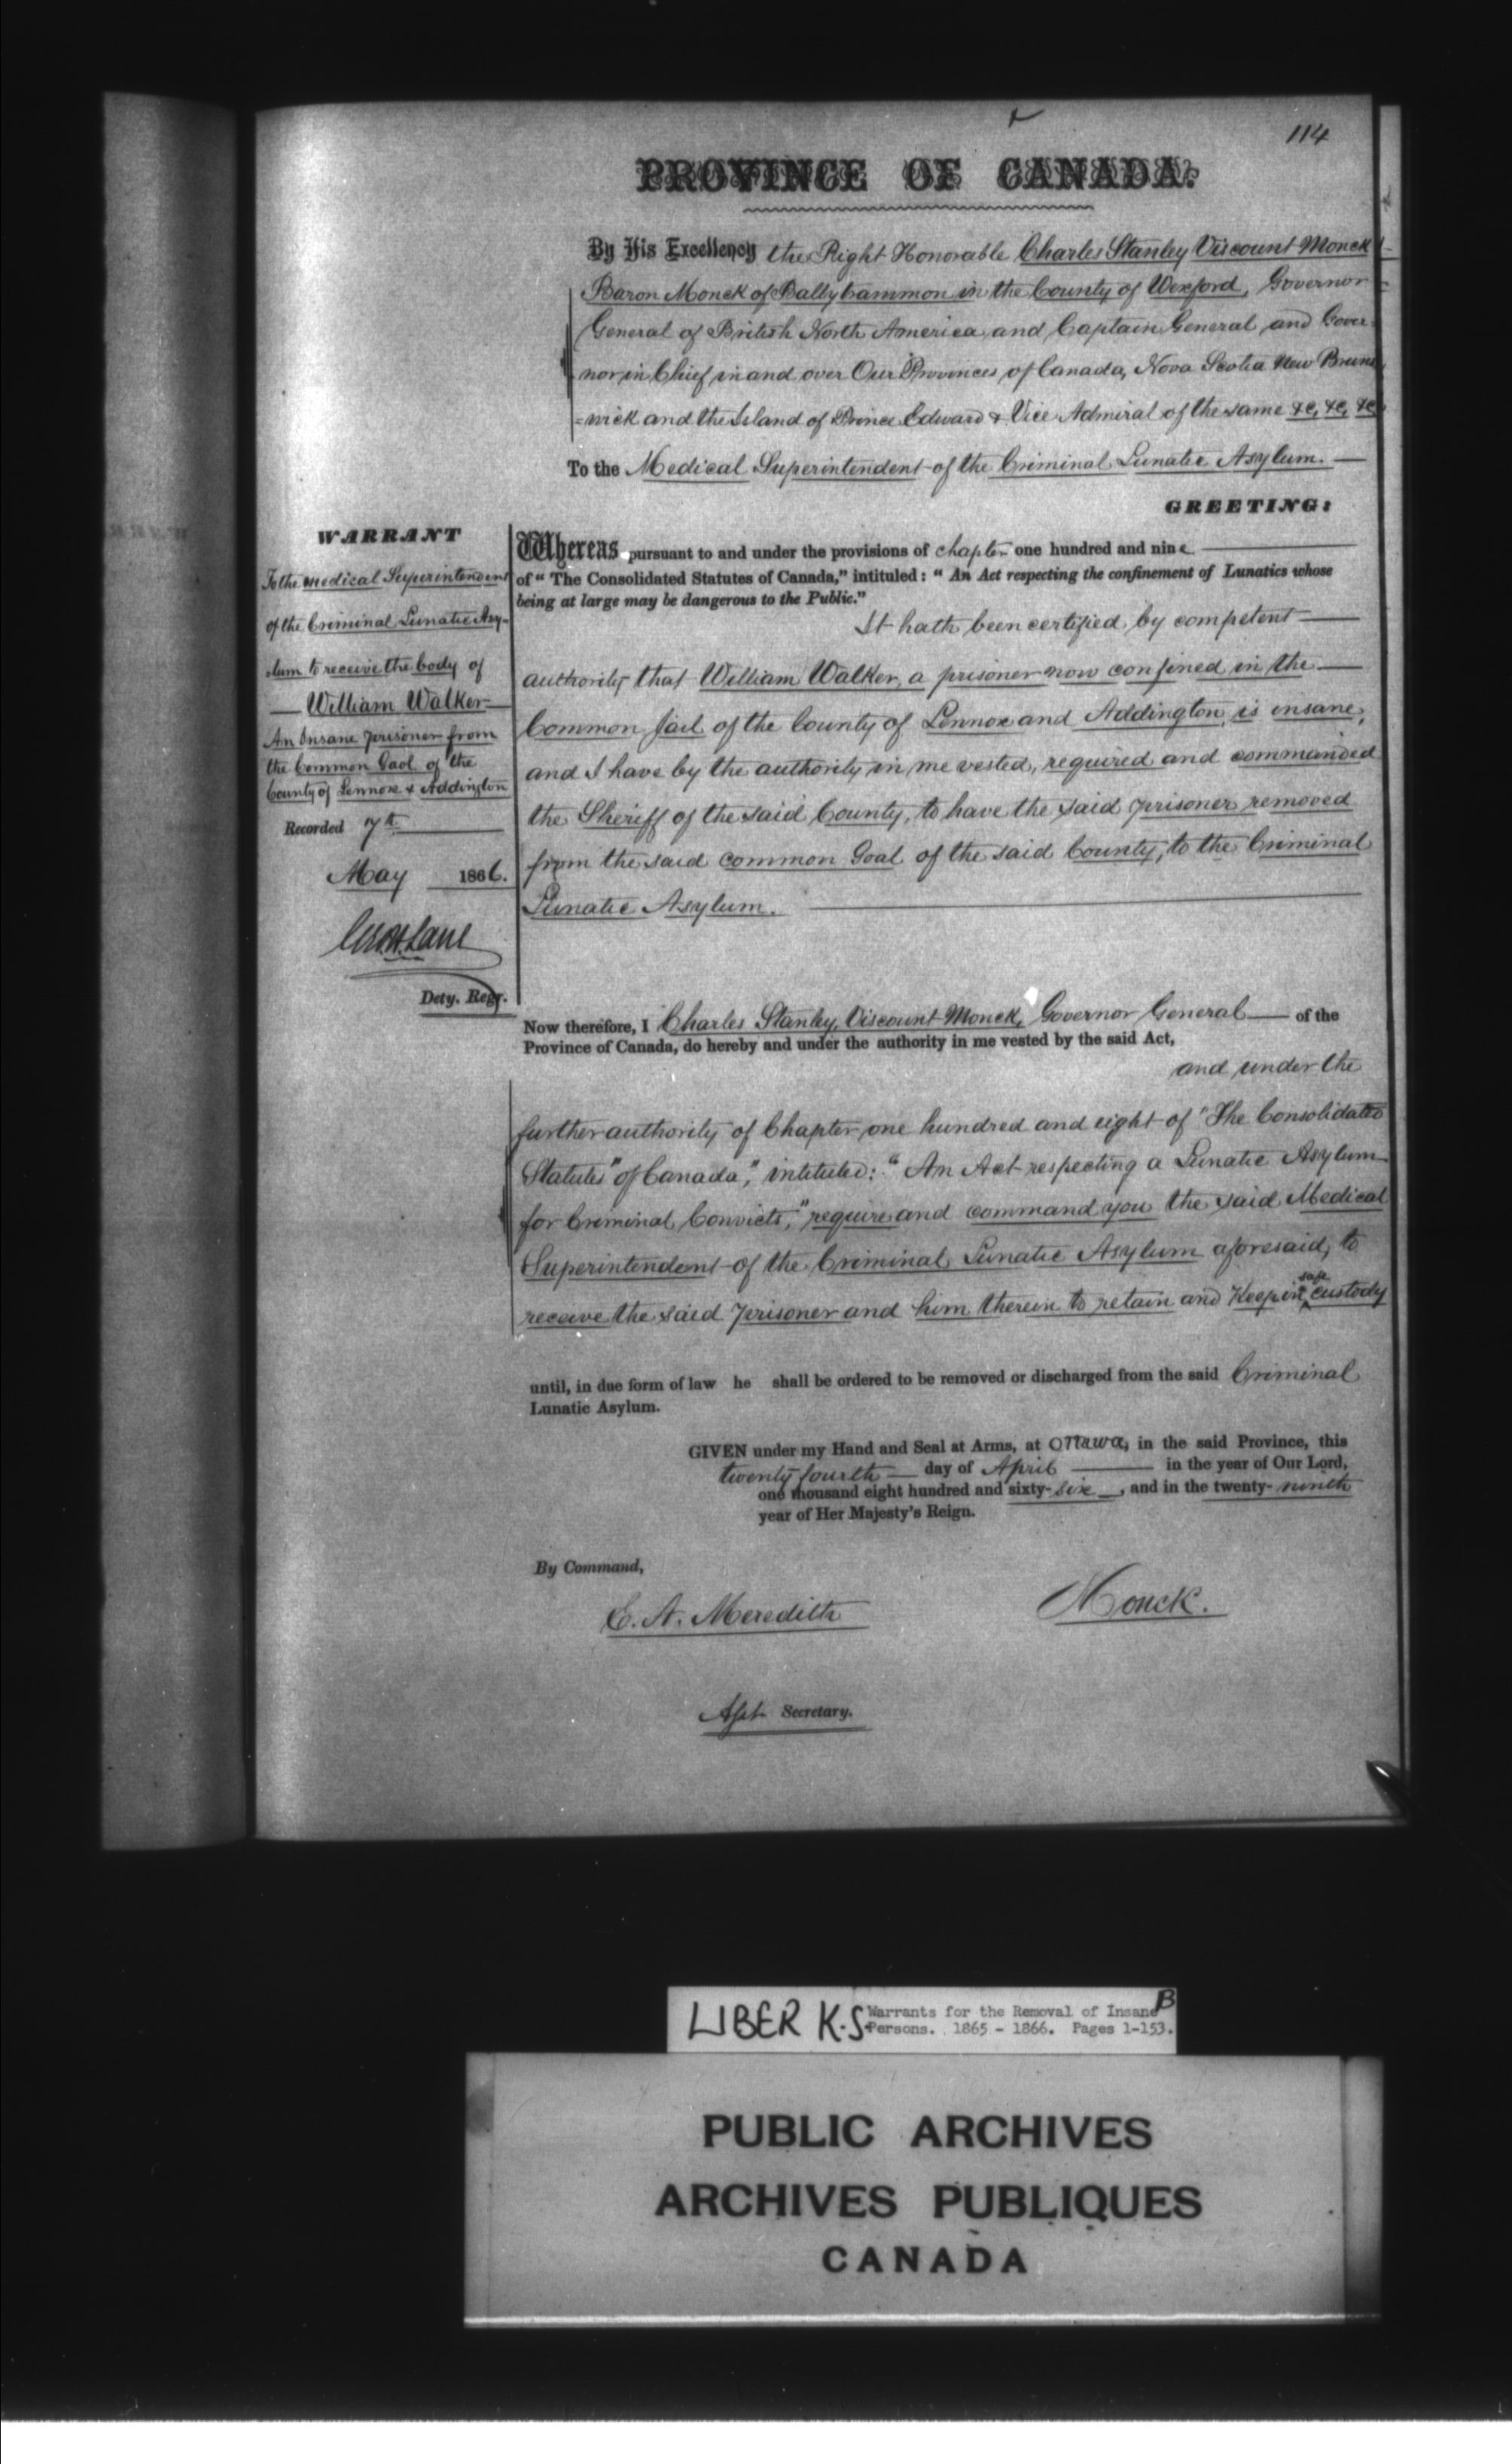 114
PROVINCE OF CANADA.
By His Excellency the Right Honorable Charles Stanley Viscount Monck
Baron Monck of Ballytrammon in the County of Wexford, Governor
General of British North America and Captain General and Gover-
nor in Chief in and over Our Provinces of Canada, Nova Scotia New Bruns
=wick and the Island of Prince Edward & Vice Admiral of the same &c, &c, &c
To the Medical Superintendent of the Criminal Lunatic Asylum.
GREETING:
WARRANT
To the Medical Superintendent
of the Criminal Lunatic Asy-
lum to receive the body of
William Walker
An Insane prisoner from
the Common Gaol of the
County of Lennox & Addington
Recorded 7th
May 1866.
Geo. H. Lane
Dety. Regr.
Whereas pursuant to and under the provisions of chapter one hundred and nine
of "The Consolidated Statutes of Canada," intituled: "An Act respecting the confinement of Lunatics whose
being at large may be dangerous to the Public."
It hath been certified by competent
authority that William Walker, a prisoner now confined in the
Common Jail of the County of Lennox and Addington, is insane,
and I have by the authority in me vested, required and commanded
the Sheriff of the said County, to have the said prisoner removed
from the said common Goal of the said County, to the Criminal
Lunatic Asylum.
Now therefore, I Charles Stanley, Viscount Monck, Governor General of the
Province of Canada, do hereby and under the authority in me vested by the said Act,
and under the
further authority of Chapter one hundred and eight of "The Consolidated
Statutes" of Canada," intituled: "An Act respecting a Lunatic Asylum
for Criminal Convicts," require and command you the said Medical
Superintendent of the Criminal Lunatic Asylum aforesaid, to
receive the said prisoner and him therein to retain and Keep in safe custody
until, in due form of law he shall be ordered to be removed or discharged from the said Criminal
Lunatic Asylum.
GIVEN under my Hand and Seal at Arms, at Ottawa, in the said Province, this
twenty fourth day of April in the year of Our Lord,
one thousand eight hundred and sixty-six, and in the twenty-ninth
year of Her Majesty's Reign.
By Command,
E. A. Meredith
Monck.
Asst Secretary.
LIBER K.S. Warrants for the Removal of Insane B
Persons. 1865 - 1866. Pages 1-153.
PUBLIC ARCHIVES
ARCHIVES PUBLIQUES
CANADA